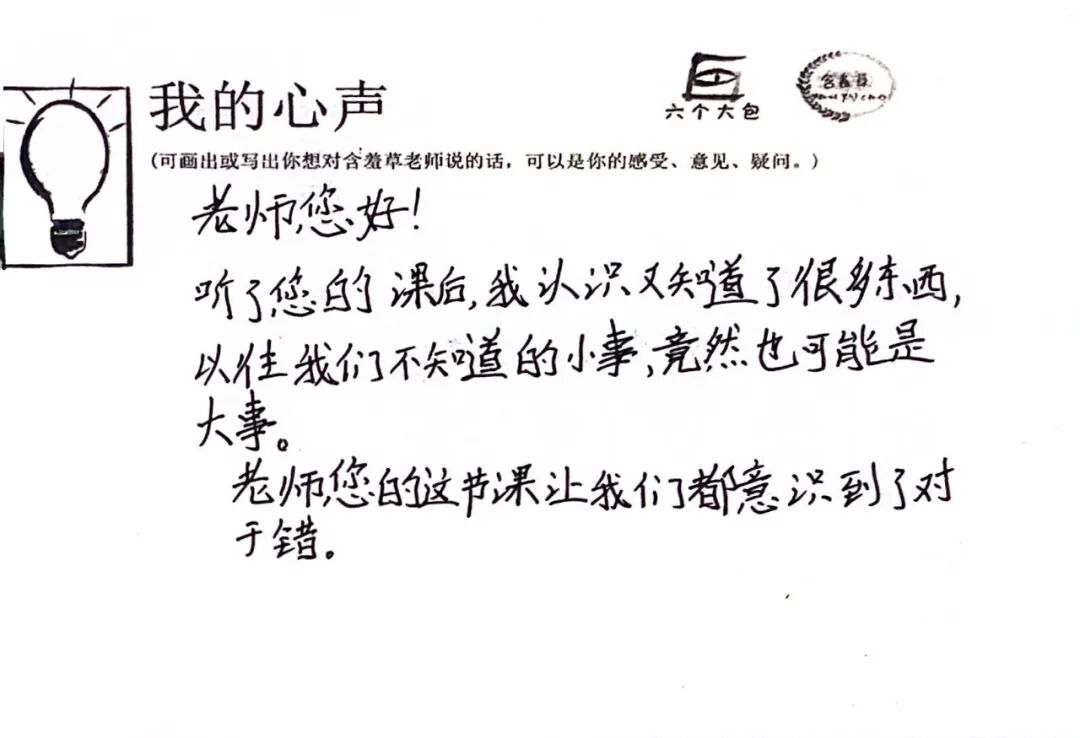 我的心声
六个大包
含羞草
(可画出或写出你想对含羞草老师说的话，可以是你的感受、意见、疑问。)
老师,您好!
听了您的课后,我认识又知道了很多东西,
以往我们不知道的小事,竟然也可能是
大事。
老师,您的这节课让我们都意识到了对
于错。